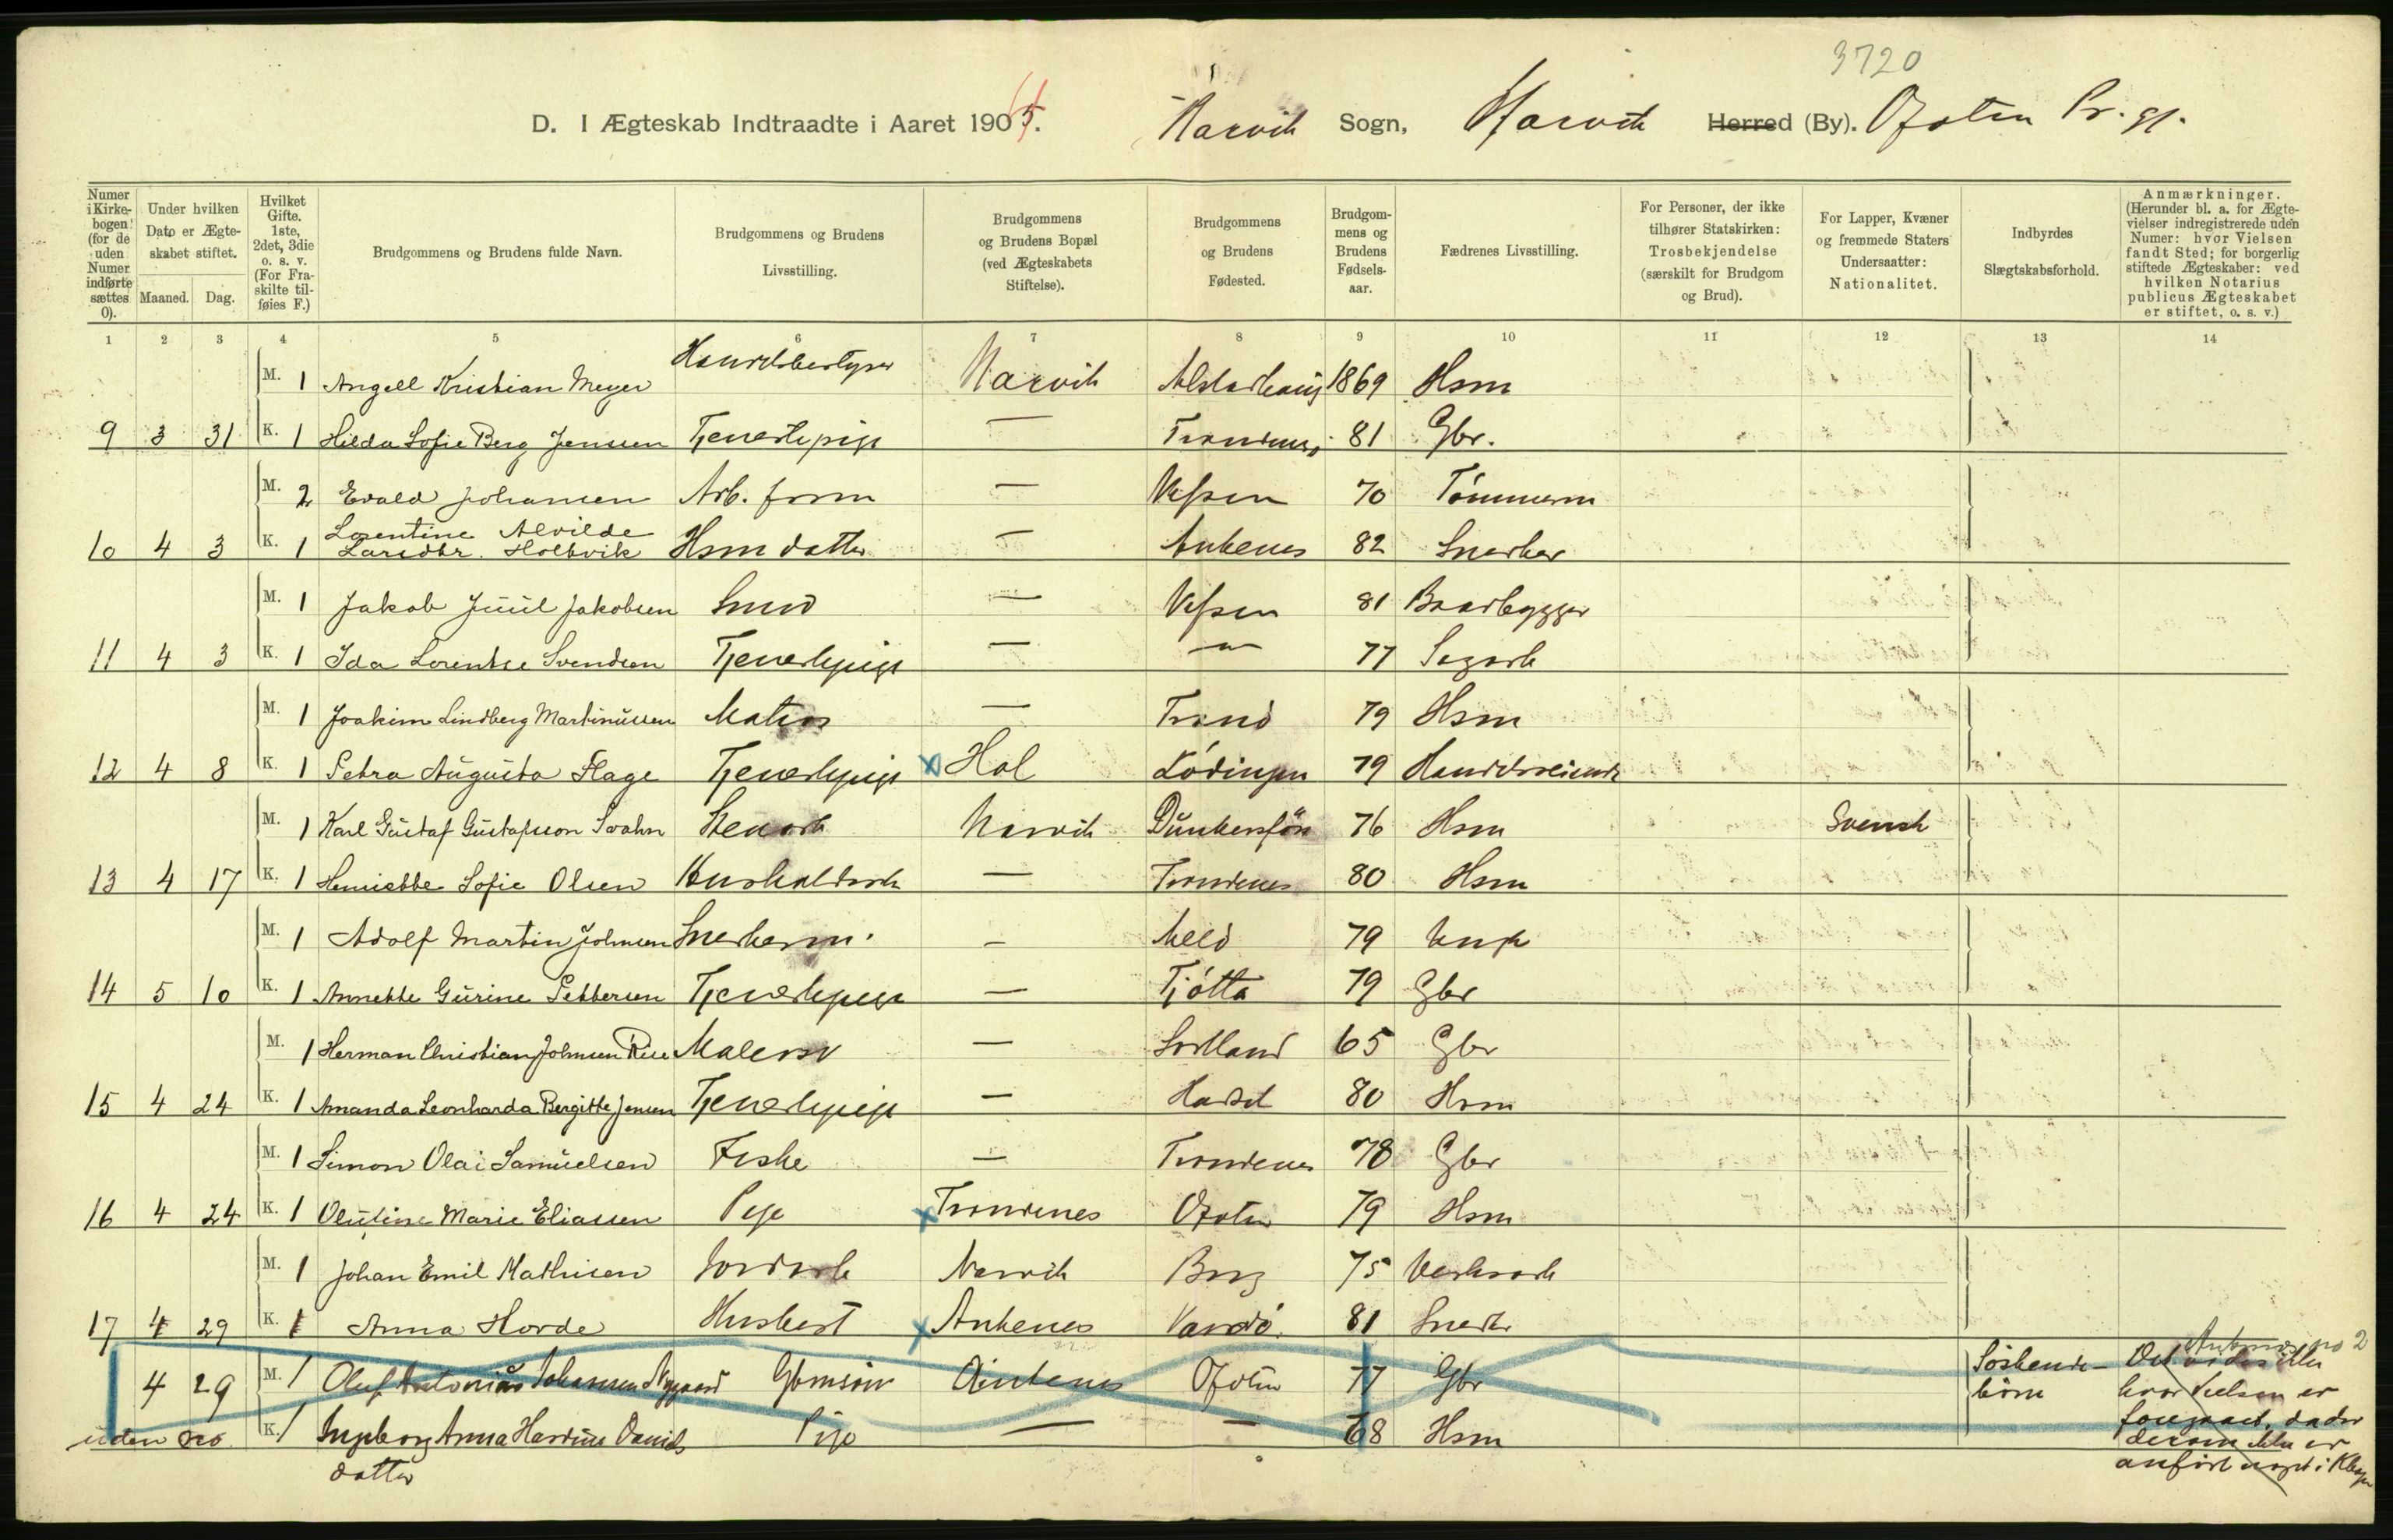 3720
D. I Ægteskab Indtraadte i Aaret 1905. Narvik Sogn, Narvik Herred (By). Ofoten Pr. gj.
Numer i Kirkebogen (for de uden Numer indførte sættes 0).
Under hvilken Dato er Ægteskabet stiftet.
Maaned. Dag.
Hvilket Gifte. 1ste, 2det, 3die o. s. v. (For Fraskilte tilføies F.)
Brudgommens og Brudens fulde Navn.
Brudgommens og Brudens Livsstilling.
Brudgommens og Brudens Bopæl (ved Ægteskabets Stiftelse).
Brudgommens og Brudens Fødested.
Brudgommens og Brudens Fødselsaar.
Fædrenes Livsstilling.
For Personer, der ikke tilhører Statskirken: Trosbekjendelse (særskilt for Brudgom og Brud).
For Lapper, Kvæner og fremmede Staters Undersaatter: Nationalitet.
Indbyrdes Slægtskabsforhold.
Anmærkninger. (Herunder bl. a. for Ægtevielser indregistrerede uden Numer: hvor Vielsen fandt Sted; for borgerlig stiftede Ægteskaber: ved hvilken Notarius publicus Ægteskabet er stiftet, o. s. v.)
1 2 3 4 5 6 7 8 9 10 11 12 13 14
M. 1 Angell Kristian Meyer Handelsbestyrer Narvik Alstadhaug 1869 Hsm
9 3 31 K. 1 Hilda Sofie Berg Jenssen Tjenestepige — Trondenes 81 Gbr.
M. 2 Evald Johansen Arb. form — Vefsen 70 Tømmerm
10 4 3 K. 1 Lorentine Alvilde Larsdtr. Holtvik Hsm datter — Ankenes 82 Snedker
M. 1 Jakob Juul Jakobsen Smed — Vefsen 81 Baadbygger
11 4 3 K. 1 Ida Lorentse Svendsen Tjenestepige — — 77 Sagarb
M. 1 Joakim Lindberg Martinussen Matros — Trond 79 Hsm
12 4 8 K. 1 Petra Augusta Hage Tjenestepige x Hol Lødingen 79 Handelsreisende
M. 1 Karl Gustaf Gustafsson Svahn Stenarb Narvik 76 Hsm Svensk
13 4 17 K. 1 Henriette Sofie Olsen — Trondenes 80 Hsm
M. 1 Adolf Martin Johnsen Snedkerm. — 79
14 5 10 K. 1 Annette Gurine Pettersen Tjenestepige — Tjøtta 79 Gbr
M. 1 Herman Christian Johnsen Rise Malersv — Sortland 65 Gbr
15 4 24 K. 1 Amanda Leonharda Bergitte Jensen Tjenestepige — Hadsel 80 Hsm
M. 1 Simon Olai Samuelsen Fisker — Trondenes 78 Gbr
16 4 24 K. 1 Olutine Marie Eliassen Pige x Trondenes Ofoten 79 Hsm
M. 1 Johan Emil Mathisen Jordarb Narvik Borg 75 Verksarb
17 4 29 K. 1 Anna Horde Husbest x Ankenes Vardø. 81 Snedk
4 29 M. 1 Oluf Antonius Johansen Nygaard Gbmsøn Ankenes Ofoten 77 Gbr Søskendebørn
uden no. K. 1 Ingeborg Anna Hardine Danielsdatter Pige — — 68 Hsm
Ankenes no 2
Det vides ikke
hvor Vielsen er
foregaaet, da der
derom ikke er
anført noget i Kbogen